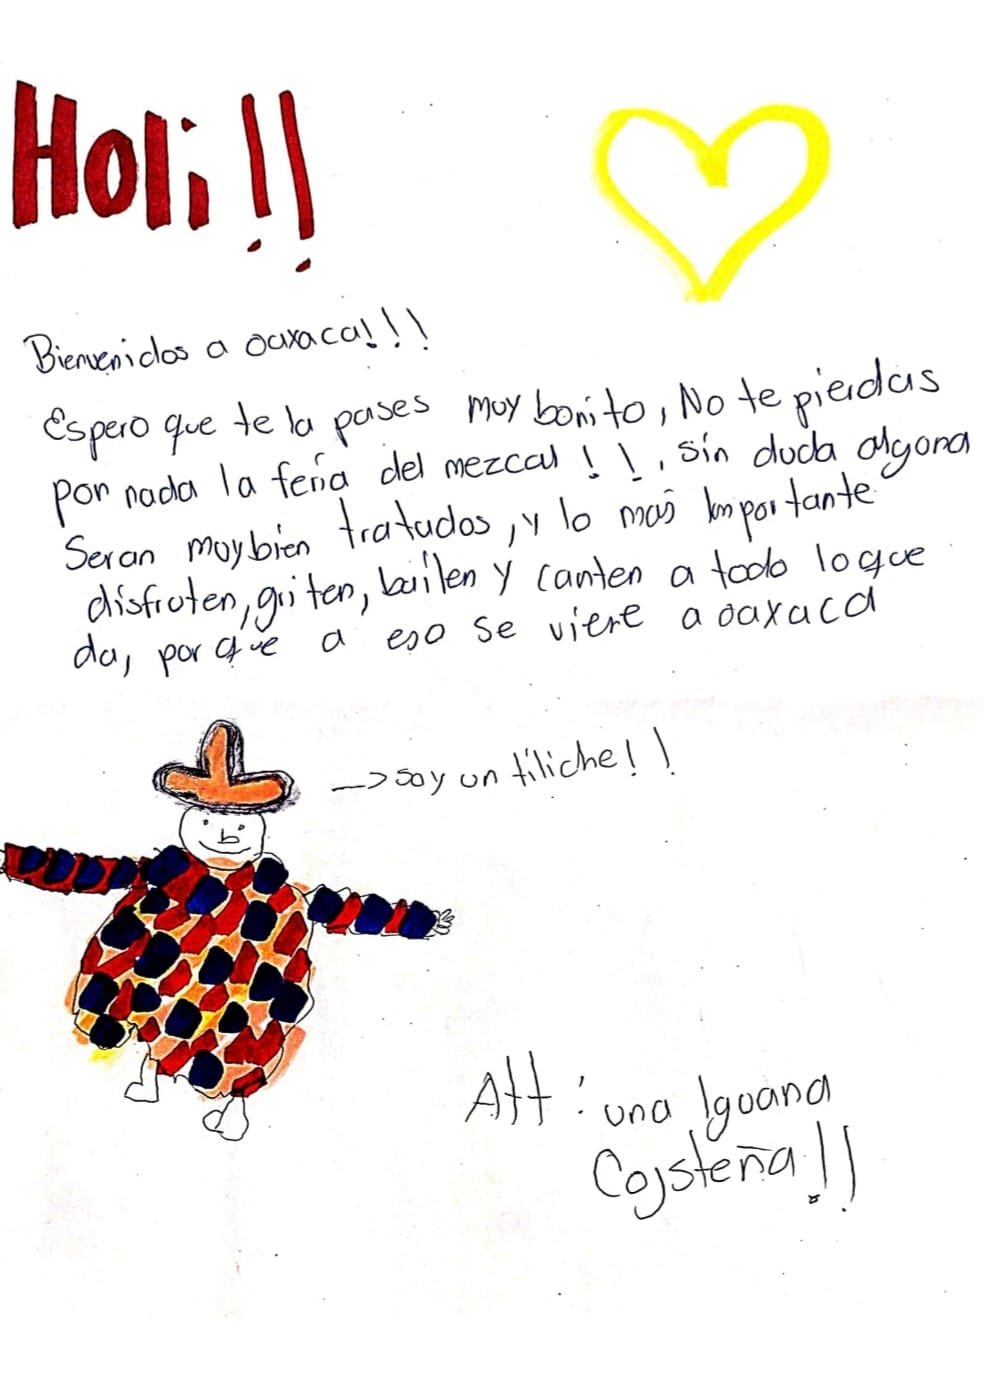 Holi!!
Bienvenidos a oaxaca!!!
Espero que te la pases muy bonito, No te pierdas
por nada la feria del mezcal!!, sin duda alguna
Seran muy bien tratados, y lo mas importante
disfruten, griten, bailen y canten a todo lo que
da, por que a eso se viene a oaxaca
→ soy un tiliche!!
Att: una Iguana
Costeña!!